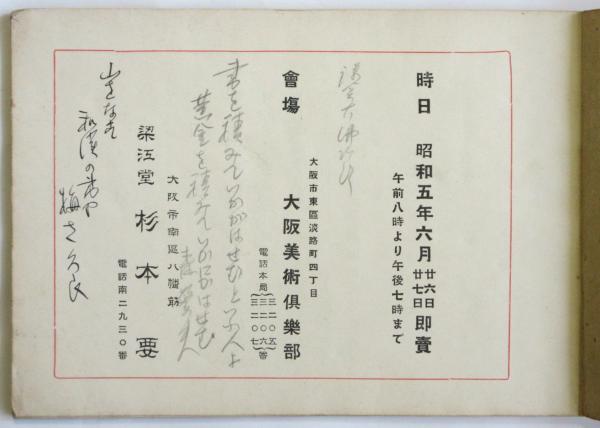 時日 昭和五年六月廿六日廿七日即賣
午前八時より午後七時まで
會場 大阪美術倶樂部
大阪市東區淡路町四丁目
電話本局三二〇五三二〇六三二〇七番
書を積みていかがはせむと
黄金を積みていかがはせむ
大阪市南區八幡筋
梁江堂 杉本要
電話南二九三〇番